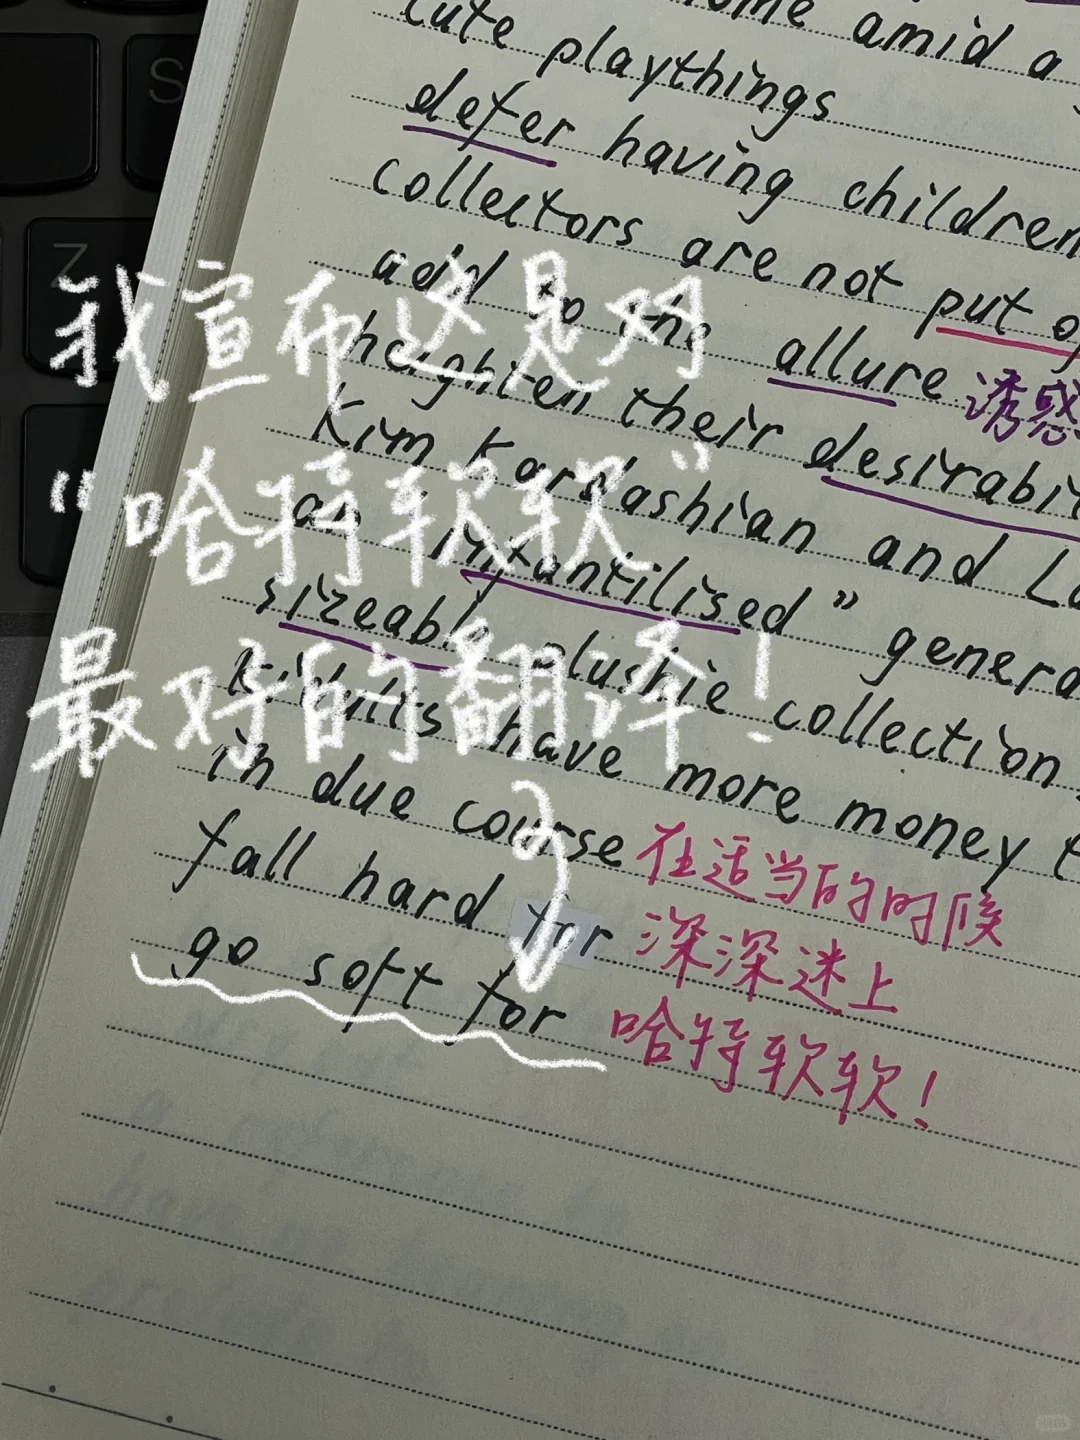 S
Z
cute playthings
amid a
defer having children
collectors are not put o
add to the allure 诱惑
heighten their desirabi
Kim Kardashian and La
an infantilised" genera
sizeable plushie collection
Kidults have more money t
in due course 在适当的时候
fall hard for 深深迷上
go soft for 哈特软软!
我宣布这是对
"哈特软软"
最好的翻译!